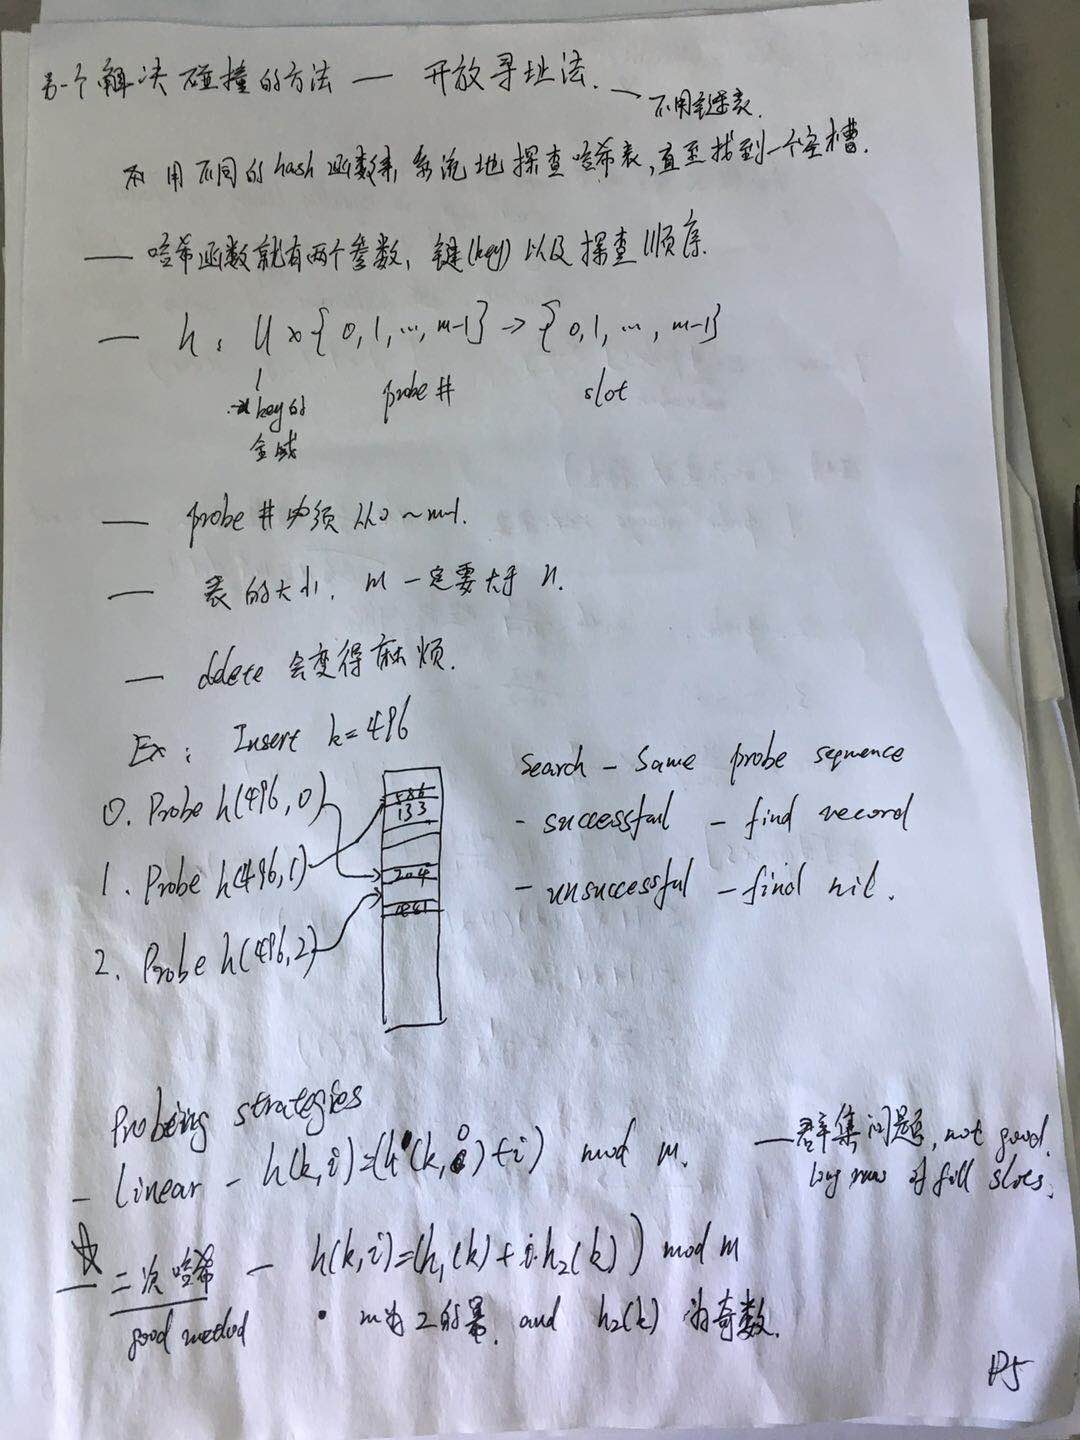 另一个解决碰撞的方法 — 开放寻址法.
不用链表.
用不同的hash函数来系统地探查哈希表,直至找到一个空槽.
— 哈希函数就有两个参数, 键(key)以及探查顺序.
— h: U × {0,1,…,m-1} → {0,1,…,m-1}
key的 probe # slot
全域
— probe # 必须从0~m-1.
— 表的大小, m一定要大于n.
— delete 会变得麻烦.
Ex: Insert k=496
0. Probe h(496,0)
1. Probe h(496,1)
2. Probe h(496,2)
586
133
204
481
search - same probe sequence
- successful - find record
- unsuccessful - find nil.
Probeing strategies
- linear - h(k,i)=(h(k,0)+i) mod m. — 群集问题, not good.
long runs of full slots.
— 二次哈希 — h(k,i)=(h₁(k)+i·h₂(k)) mod m
good method • m为2的幂, and h₂(k) 为奇数.
P5